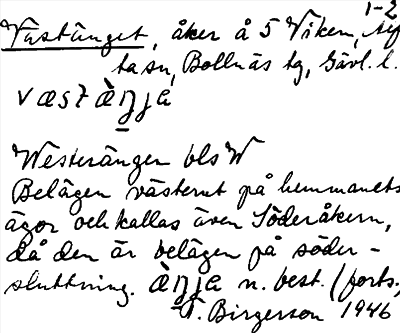 1-2
Västänget, åker å 5 Viken, Alf
ta sn, Bollnäs tg, Gävl. l.
væstàŋja
Westerängen bls W
Belägen västerut på hemmanets
ägor och kallas även Söderåkern,
då den är belägen på söder-
sluttning. àŋja n. best. (forts.)
T. Birgerson 1946